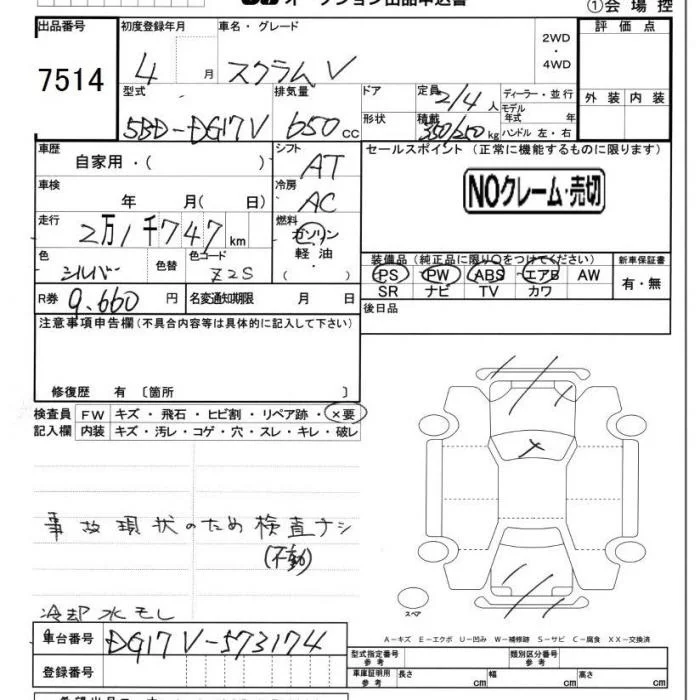 オークション出品申込書
①会場控
出品番号 初度登録年月 車名・グレード 評価点
7514 4 月 スクラムV 2WD・4WD
型式 排気量 ドア 定員 2/4 人 ディーラー・並行 外装 内装
5BD-DG17V 650 cc 形状 積載 350/250 kg モデル年式 年 ハンドル 左・右
車歴 シフト セールスポイント(正常に機能するものに限ります)
自家用・( ) AT
NOクレーム・売切
車検 冷房
年 月( 日) AC
走行 燃料
2万1千747 km ガソリン
軽油
・( )
色 色替 色コード 装備品(純正品に限り〇をつけてください) 新車保証書
シルバー Z2S PS PW ABS エアB AW 有・無
SR ナビ TV カワ
R券 9.660 円 名変通知期限 月 日 後日品
注意事項申告欄(不具合内容等は具体的に記入して下さい)
修復歴 有 〔箇所 〕
検査員 FW キズ・飛石・ヒビ割・リペア跡・×要
記入欄 内装 キズ・汚レ・コゲ・穴・スレ・キレ・破レ
事故現状のため検査ナシ
(不動)
冷却水モレ
スペア
A-キズ E-エクボ U-凹み W-補修跡 S-サビ C-腐食 XX-交換済
車台番号 DG17V-573174
型式指定番号 参考 類別区分番号 参考
登録番号 車庫証明用 参考 長さ cm 幅 cm 高さ cm